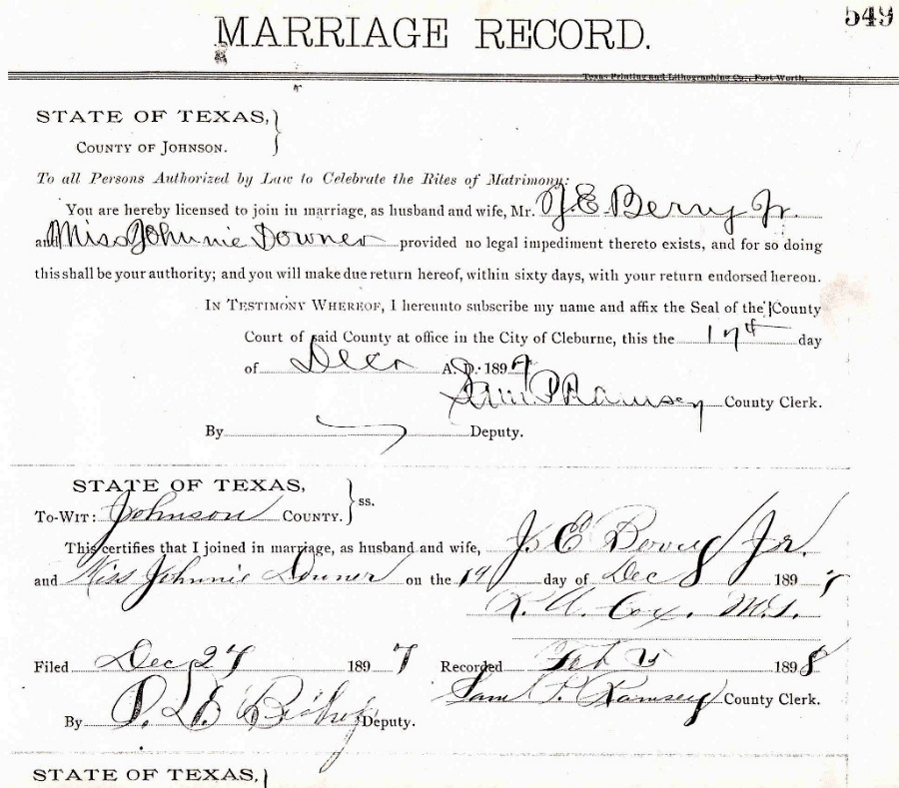 549
MARRIAGE RECORD.
Texas Printing and Lithographing Co., Fort Worth.
STATE OF TEXAS,
COUNTY OF JOHNSON.
To all Persons Authorized by Law to Celebrate the Rites of Matrimony:
You are hereby licensed to join in marriage, as husband and wife, Mr. J.E. Berry Jr.
and Miss Johnnie Downer provided no legal impediment thereto exists, and for so doing
this shall be your authority; and you will make due return hereof, within sixty days, with your return endorsed hereon.
IN TESTIMONY WHEREOF, I hereunto subscribe my name and affix the Seal of the County
Court of said County at office in the City of Cleburne, this the 17th day
of Decr A.D. 1897
Sam P Ramsey County Clerk.
By Deputy.
STATE OF TEXAS,
TO-WIT: Johnson COUNTY. ss.
This certifies that I joined in marriage, as husband and wife, J. E Berry Jr.
and Miss Johnnie Downer on the 19 day of Dec 1897
Cox, M.G.
Filed Dec 27 1897 Recorded Feb 1898
Sam P. Ramsey County Clerk.
By Bishop Deputy.
STATE OF TEXAS,